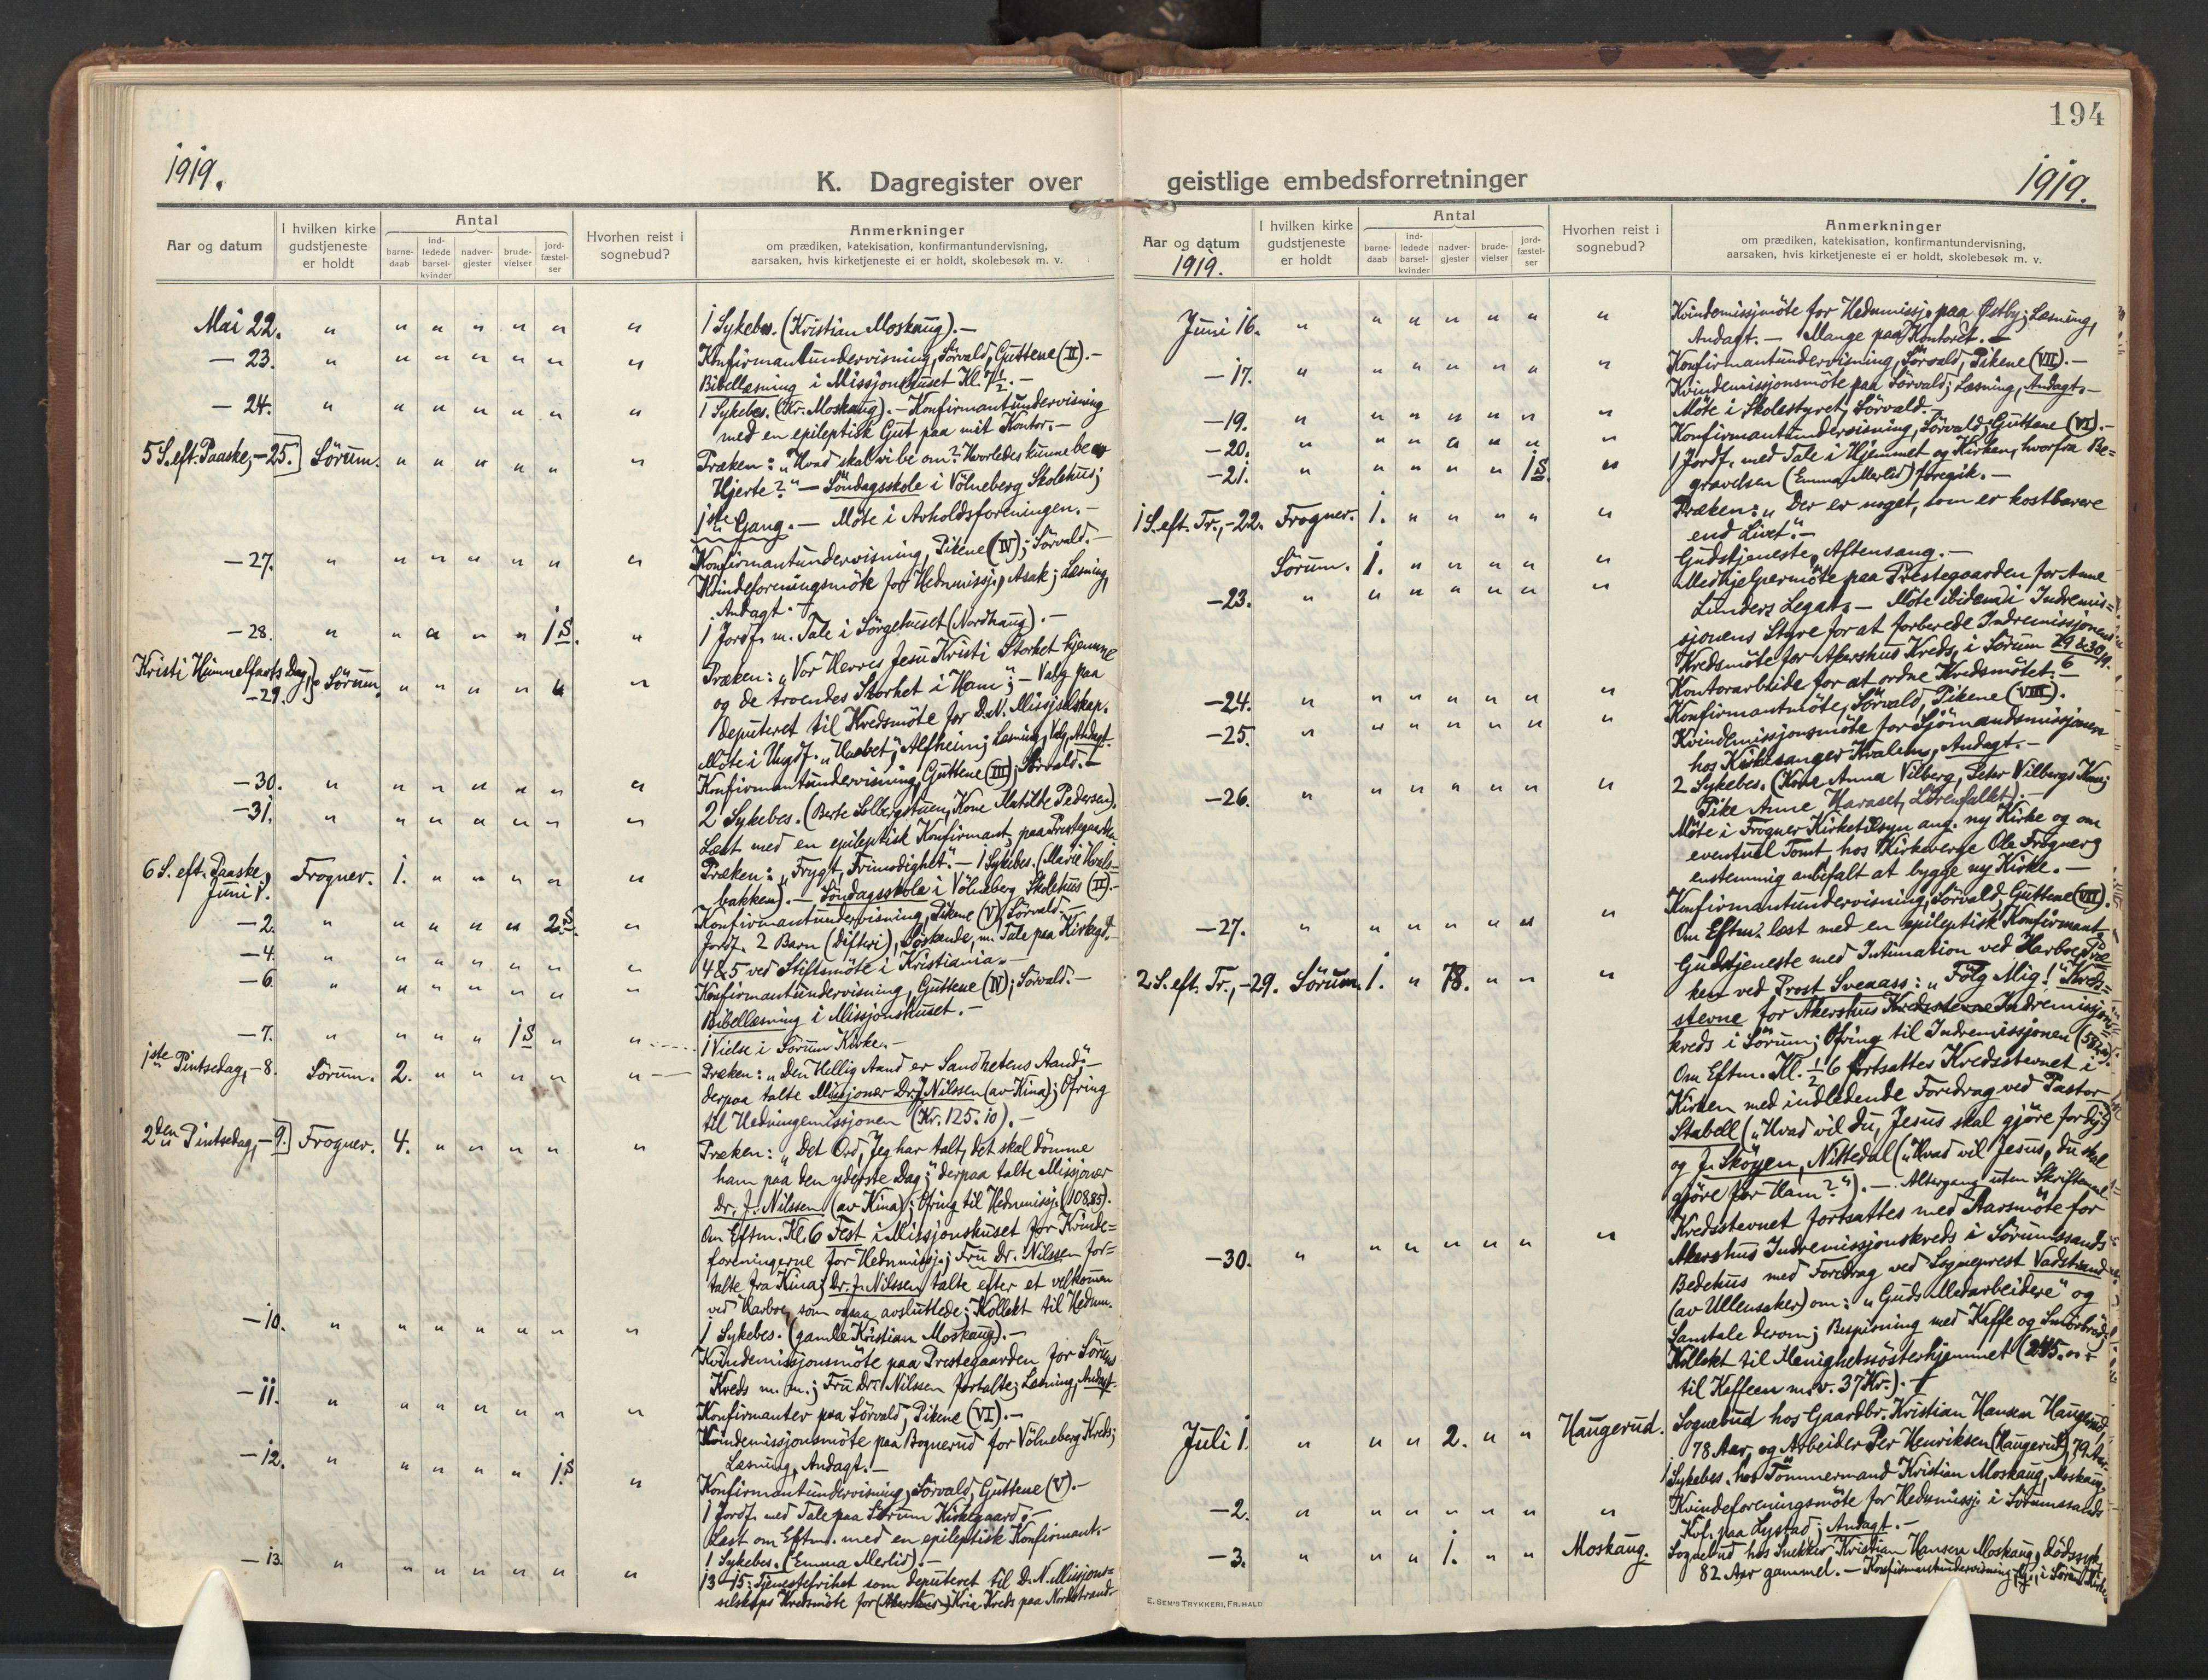 194
1919.
K. Dagregister over
Aar og datum
I hvilken kirke gudstjeneste er holdt
Antal
barne-daab
ind-ledede barsel-kvinder
nadver-gjester
brude-vielser
jord-fæstel-ser
Hvorhen reist i sognebud?
Anmerkninger
om prædiken, katekisation, konfirmantundervisning,
aarsaken, hvis kirketjeneste ei er holdt, skolebesøk m. v.
Mai 22. " " " " " " " 1 Sykebes. (Kristian Moskaug). —
— 23. " " " " " " " Konfirmantundervisning, Sörvald, Guttene (II). —
Bibellæsning i Missjonshuset Kl. 7½. —
— 24. " " " " " " " 1 Sykebes. (Kr. Moskaug). — Konfirmantundervisning
med en epileptisk Gut paa mit Kontor. —
5 S. eft. Paaske, — 25. Sörum. " " " " " " Præken: "Hvad skal vi be om? Hvorledes kunne be av
Hjerte?" — Söndagsskole i Völneberg Skolehus;
1ste Gang. — Möte i Avholdsforeningen. —
— 27. " " " " " " " Konfirmantundervisning, Pikene (IV); Sörvald. —
Kvindeforeningsmöte for Hednmissj., Asak; Læsning,
Andagt. —
— 28. " " " " " 1 S. " 1 Jordf. m. Tale i Sörgehuset (Nordhaug). —
Kristi Himmelfarts Dag,
— 29. Sörum. " " " " " " Præken: "Vor Herres Jesu Kristi Storhet hjemme
og de troendes Storhet i Ham"; — Valg paa
deputeret til Kredsmöte for D. N. Missjselskap.
Möte i Ungdf. "Haabet", Alfheim; Læsning, Valg, Andagt.
— 30. " " " " " " " Konfirmantundervisning, Guttene (III); Sörvald. —
— 31. " " " " " " " 2 Sykebes. (Berte Solbergstuen, Kone Matilde Pedersen).
Læst med en epileptisk Konfirmant paa Prestegaarden
6 S. eft. Paaske,
Juni 1. Frogner. 1. " " " " " Præken: "Frygt, Frimodighet". — 1 Sykebes. (Marie Hvals-
bakken). — Söndagsskole i Völneberg Skolehus (II). —
— 2. " " " " " 2 S. " Konfirmantundervisning, Pikene (V), Sörvald. —
Jordf. 2 Barn (Difteri), Söskende, m. Tale paa Kirkegd.
— 4. " " " " " " " 4 & 5 ved Stiftsmöte i Kristiania. —
— 6. " " " " " " " Konfirmantundervisning, Guttene (IV); Sörvald. —
Bibellæsning i Missjonshuset. —
— 7. " " " " 1 S " " 1 Vielse i Sörum Kirke. —
1ste Pintsedag, — 8. Sörum. 2. " " " " " Præken: "Den Hellig Aand er Sandhetens Aand"; —
derpaa talte Missjonær Dr. J. Nilssen (av Kina); Ofring
til Hedningemissjonen (Kr. 125.10). —
2den Pintsedag, — 9. Frogner. 4. " " " " " Præken: "Det Ord, Jeg har talt, det skal dömme
ham paa den yderste Dag"; derpaa talte Missjonær
Dr. J. Nilssen (av Kina); Ofring til Hednmissj. (108.85).
Om Eftm. Kl. 6 Fest i Missjonshuset for Kvinde-
foreningerne for Hednmissj.; Fru Dr. Nilssen for-
talte fra Kina; Dr. J. Nilssen talte efter et velkommen
ved Harboe, som ogsaa avsluttede; Kollekt til Hednm.
— 10. " " " " " " " 1 Sykebes. (gamle Kristian Moskaug). —
Kvindemissjonsmöte paa Prestegaarden for Sörum
Kreds m. m.; Fru Dr. Nilssen fortalte; Læsning, Andagt.
— 11. " " " " " " " Konfirmanter paa Sörvald, Pikene (VI). —
Kvindemissjonsmöte paa Bognerud for Völneberg Kreds;
Læsning, Andagt. —
— 12. " " " " " 1. S " Konfirmantundervisning, Sörvald, Guttene (V). —
1 Jordf. med Tale paa Sörum Kirkegaard. —
Læst om Eftm. med en epileptisk Konfirmant. —
— 13. " " " " " " " 1 Sykebes. (Emma Merlid). —
13–15: Tjenestefrihet som deputeret til D. N. Missjons-
selskaps Kredsmöte for (Akershus) Kria Kreds paa Nordstrand
geistlige embedsforretninger
1919.
Aar og datum
1919.
I hvilken kirke gudstjeneste er holdt
Antal
barne-daab
ind-ledede barsel-kvinder
nadver-gjester
brude-vielser
jord-fæstel-ser
Hvorhen reist i sognebud?
Anmerkninger
om prædiken, katekisation, konfirmantundervisning,
aarsaken, hvis kirketjeneste ei er holdt, skolebesøk m. v.
Juni 16. " " " " " " " Kvindemissjmöte for Hednmissj. paa Østby; Læsning,
Andagt. — Mange paa Kontoret. —
— 17. " " " " " " " Konfirmantundervisning, Sörvald, Pikene (VII). —
Kvindemissjonsmöte paa Sörvald; Læsning, Andagt. —
— 19. " " " " " " " Möte i Skolestyret, Sörvald. —
— 20. " " " " " " " Konfirmantundervisning, Sörvald, Guttene (VI). —
— 21. " " " " " 1 S. " 1 Jordf. med Tale i Hjemmet og Kirken, hvorfra Be-
gravelsen (Emma Merlid) foregik. —
1 S. eft. Tr., — 22. Frogner. 1. " " " " " Præken: "Der er noget, som er kostbarere
end Livet". —
Sörum. 1. " " " " " Gudstjeneste, Aftensang. —
— 23. " " " " " " " Medhjelpermöte paa Prestegaarden for Anne
Lunders Legat. — Möte ibidem i Indremis-
sjonens Styre for at forberede Indremissjonens
Kredsmöte for Akershus Kreds, i Sörum 29 & 30/6 19.
Kontorarbeide for at ordne Kredsmötet. —
— 24. " " " " " " " Konfirmantmöte, Sörvald, Pikene (VIII).
— 25. " " " " " " " Kvindemissjonsmöte for Sjömandsmissjonen
hos Kirkesanger Kvalem, Andagt. —
— 26. " " " " " " " 2 Sykebes. (Kone Anna Vilberg, Peter Vilbergs Kone;
Pike Anne Haraset, Lörenfallet). —
Möte i Frogner Kirketilsyn ang. ny Kirke og om
eventuel Tomt hos Kirkeverge Ole Frogner;
enstemmig anbefalt at bygge ny Kirke. —
— 27. " " " " " " " Konfirmantundervisning, Sörvald, Guttene (VII).
Om Eftm. læst med en epileptisk Konfirmant.
2 S. eft. Tr., — 29. Sörum. 1. " 78. " " " Gudstjeneste med Intimation ved Harboe; Præ-
ken ved Prost Sveaass: "Fölg Mig!" Kreds-
stevne for Akershus Indremissjons-
kreds i Sörum; Ofring til Indremissjonen
Om Eftm. Kl. ½ 6 fortsattes Kredsstevnet i
Kirken med indledende Foredrag ved Pastor
Stabell ("Hvad vil du, Jesus skal gjöre for dig?")
og J. Sköyen, Nittedal ("Hvad vil Jesus, du skal
gjöre for Ham?"). — Altergang uten Skriftemaal
— 30. " " " " " " " Kredsstevnet fortsattes med Aarsmöte for
Akershus Indremissjonskreds i Sörumssands
Bedehus med Foredrag ved Sogneprest Vadstrand
(av Ullensaker) om: "Guds Medarbeidere" og
Samtale derom; Bespisning med Kaffe og Smörbröd;
Kollekt til Menighetssösterhjemmet (245.00 +
til Kaffeen m. v. 37 Kr.). —
Juli 1. " " " 2. " " Haugerud. Sognebud hos Gaardbr. Kristian Hansen Haugerud,
78 Aar, og Arbeider Per Henriksen (Haugerud), 79 Aar.
1 Sykebes. hos Tömmermand Kristian Moskaug, Moskaug.
— 2. " " " " " " " Kvindeforeningsmöte for Hednmissj. i Sörumssands
Kvf. paa Lystad; Andagt. —
— 3. " " " 1. " " Moskaug. Sognebud hos Snekker Kristian Hansen Moskaug, dödssyk,
82 Aar gammel. — Konfirmantundervisning, i Sörum Kirke
E. SEM'S TRYKKERI, FR.HALD